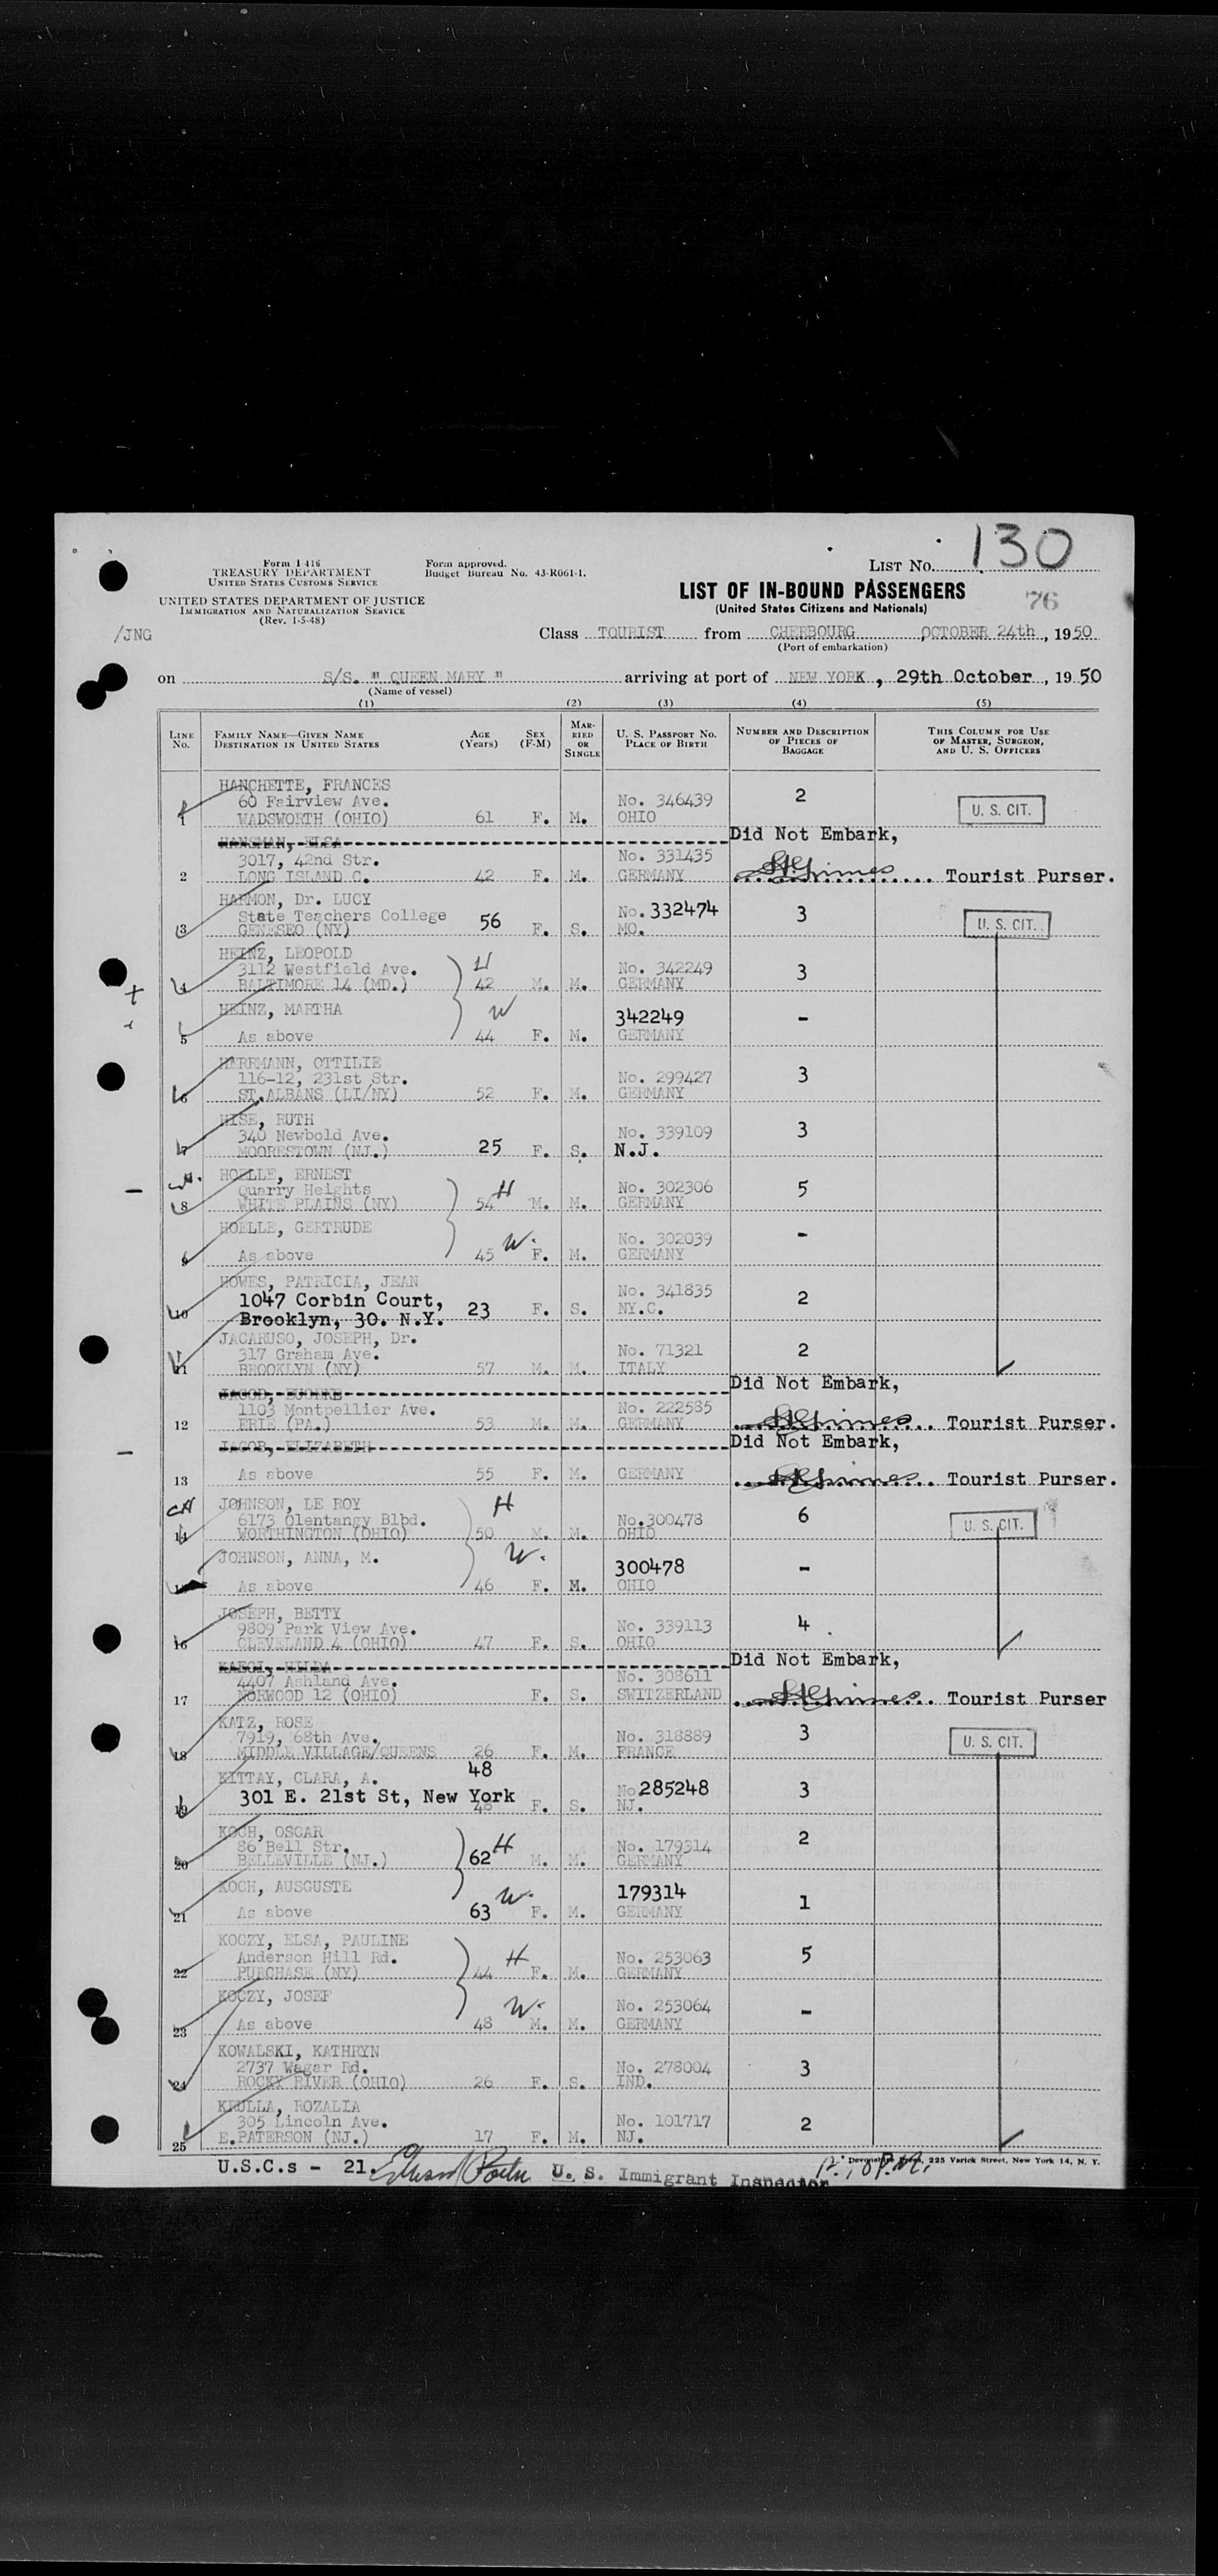 130
Form I 416
TREASURY DEPARTMENT
UNITED STATES CUSTOMS SERVICE
Form approved.
Budget Bureau No. 43-R061-1.
LIST No.
UNITED STATES DEPARTMENT OF JUSTICE
IMMIGRATION AND NATURALIZATION SERVICE
(Rev. 1-5-48)
LIST OF IN-BOUND PASSENGERS
(United States Citizens and Nationals)
76
/JNG
Class TOURIST from CHERBOURG OCTOBER 24th, 1950
(Port of embarkation)
on S/S. " QUEEN MARY " arriving at port of NEW YORK, 29th October, 1950
(Name of vessel)
(1) (2) (3) (4) (5)
LINE No. FAMILY NAME—GIVEN NAME DESTINATION IN UNITED STATES AGE (Years) SEX (F-M) MARRIED OR SINGLE U. S. PASSPORT NO. PLACE OF BIRTH NUMBER AND DESCRIPTION OF PIECES OF BAGGAGE THIS COLUMN FOR USE OF MASTER, SURGEON, AND U. S. OFFICERS
HANCHETTE, FRANCES
60 Fairview Ave. No. 346439 2
1 WADSWORTH (OHIO) 61 F. M. OHIO U. S. CIT.
HANGMAN, ELSA Did Not Embark,
3017, 42nd Str. No. 331435
2 LONG ISLAND C. 42 F. M. GERMANY Tourist Purser.
HARMON, Dr. LUCY
State Teachers College 56 No. 332474 3
3 GENESEO (NY) F. S. MO. U. S. CIT.
HEINZ, LEOPOLD H
3112 Westfield Ave. No. 342249 3
4 BALTIMORE 14 (MD.) 42 M. M. GERMANY
HEINZ, MARTHA W 342249 -
5 As above 44 F. M. GERMANY
HERRMANN, OTTILIE
116-12, 231st Str. No. 299427 3
6 ST.ALBANS (LI/NY) 52 F. M. GERMANY
HISE, RUTH
340 Newbold Ave. No. 339109 3
7 MOORESTOWN (NJ.) 25 F. S. N.J.
HOELLE, ERNEST
Quarry Heights H No. 302306 5
8 WHITE PLAINS (NY) 54 M. M. GERMANY
HOELLE, GERTRUDE W. No. 302039 -
9 As above 45 F. M. GERMANY
HOWES, PATRICIA, JEAN
1047 Corbin Court, No. 341835 2
10 Brooklyn, 30. N.Y. 23 F. S. NY.C.
JACARUSO, JOSEPH, Dr.
317 Graham Ave. No. 71321 2
11 BROOKLYN (NY) 57 M. M. ITALY
Did Not Embark,
1103 Montpellier Ave. No. 222585
12 ERIE (PA.) 53 M. M. GERMANY Tourist Purser.
JACOB, ELIZABETH Did Not Embark,
13 As above 55 F. M. GERMANY Tourist Purser.
JOHNSON, LE ROY H
6173 Olentangy Blbd. No.300478 6
14 WORTHINGTON (OHIO) 50 M. M. OHIO U. S. CIT.
JOHNSON, ANNA, M. W. 300478 -
As above 46 F. M. OHIO
JOSEPH, BETTY
9809 Park View Ave. No. 339113 4
16 CLEVELAND 4 (OHIO) 47 F. S. OHIO
KAEGI, HILDA Did Not Embark,
4407 Ashland Ave. No. 308611
17 NORWOOD 12 (OHIO) F. S. SWITZERLAND Tourist Purser
KATZ, ROSE
7919, 68th Ave. No. 318889 3
18 MIDDLE VILLAGE/QUEENS 26 F. M. FRANCE U. S. CIT.
KITTAY, CLARA, A. 48
301 E. 21st St, New York No 285248 3
19 48 F. S. NJ.
KOCH, OSCAR
86 Bell Str. H No. 179314 2
20 BELLEVILLE (NJ.) 62 M. M. GERMANY
KOCH, AUSGUSTE W. 179314 1
21 As above 63 F. M. GERMANY
KOCZY, ELSA, PAULINE
Anderson Hill Rd. H No. 253063 5
22 PURCHASE (NY) 44 F. M. GERMANY
KOCZY, JOSEF W. No. 253064 -
23 As above 48 M. M. GERMANY
KOWALSKI, KATHRYN
2737 Wagar Rd. No. 278004 3
24 ROCKY RIVER (OHIO) 26 F. S. IND.
KRULLA, ROZALIA
305 Lincoln Ave. No. 101717 2
25 E.PATERSON (NJ.) 17 F. M. NJ.
U.S.C.s - 21. U. S. Immigrant Inspector
Devonshire Press, 225 Varick Street, New York 14, N. Y.